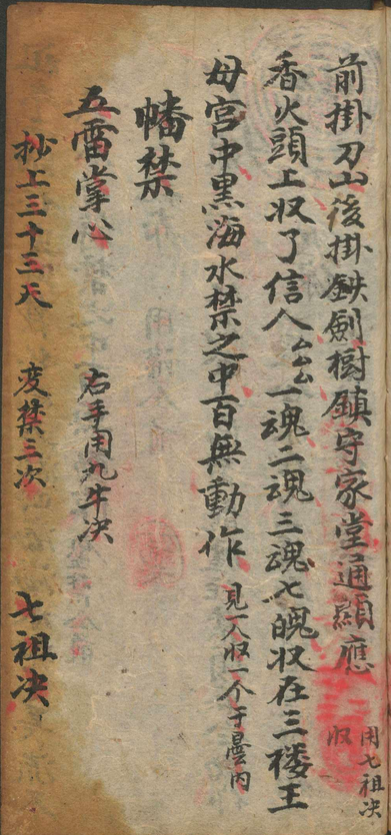 前掛刀山後掛鉄劍樹鎮守家堂通顯應 用七祖决收
香火頭上収了信人厶厶一魂二魂三魂七魄収在三楼王
母宮中黒海水禁之中百無動作 見一人収一个于曇内
幡禁
五雷掌心 右手用九牛决
抄上三十三天 変禁三次 七祖决